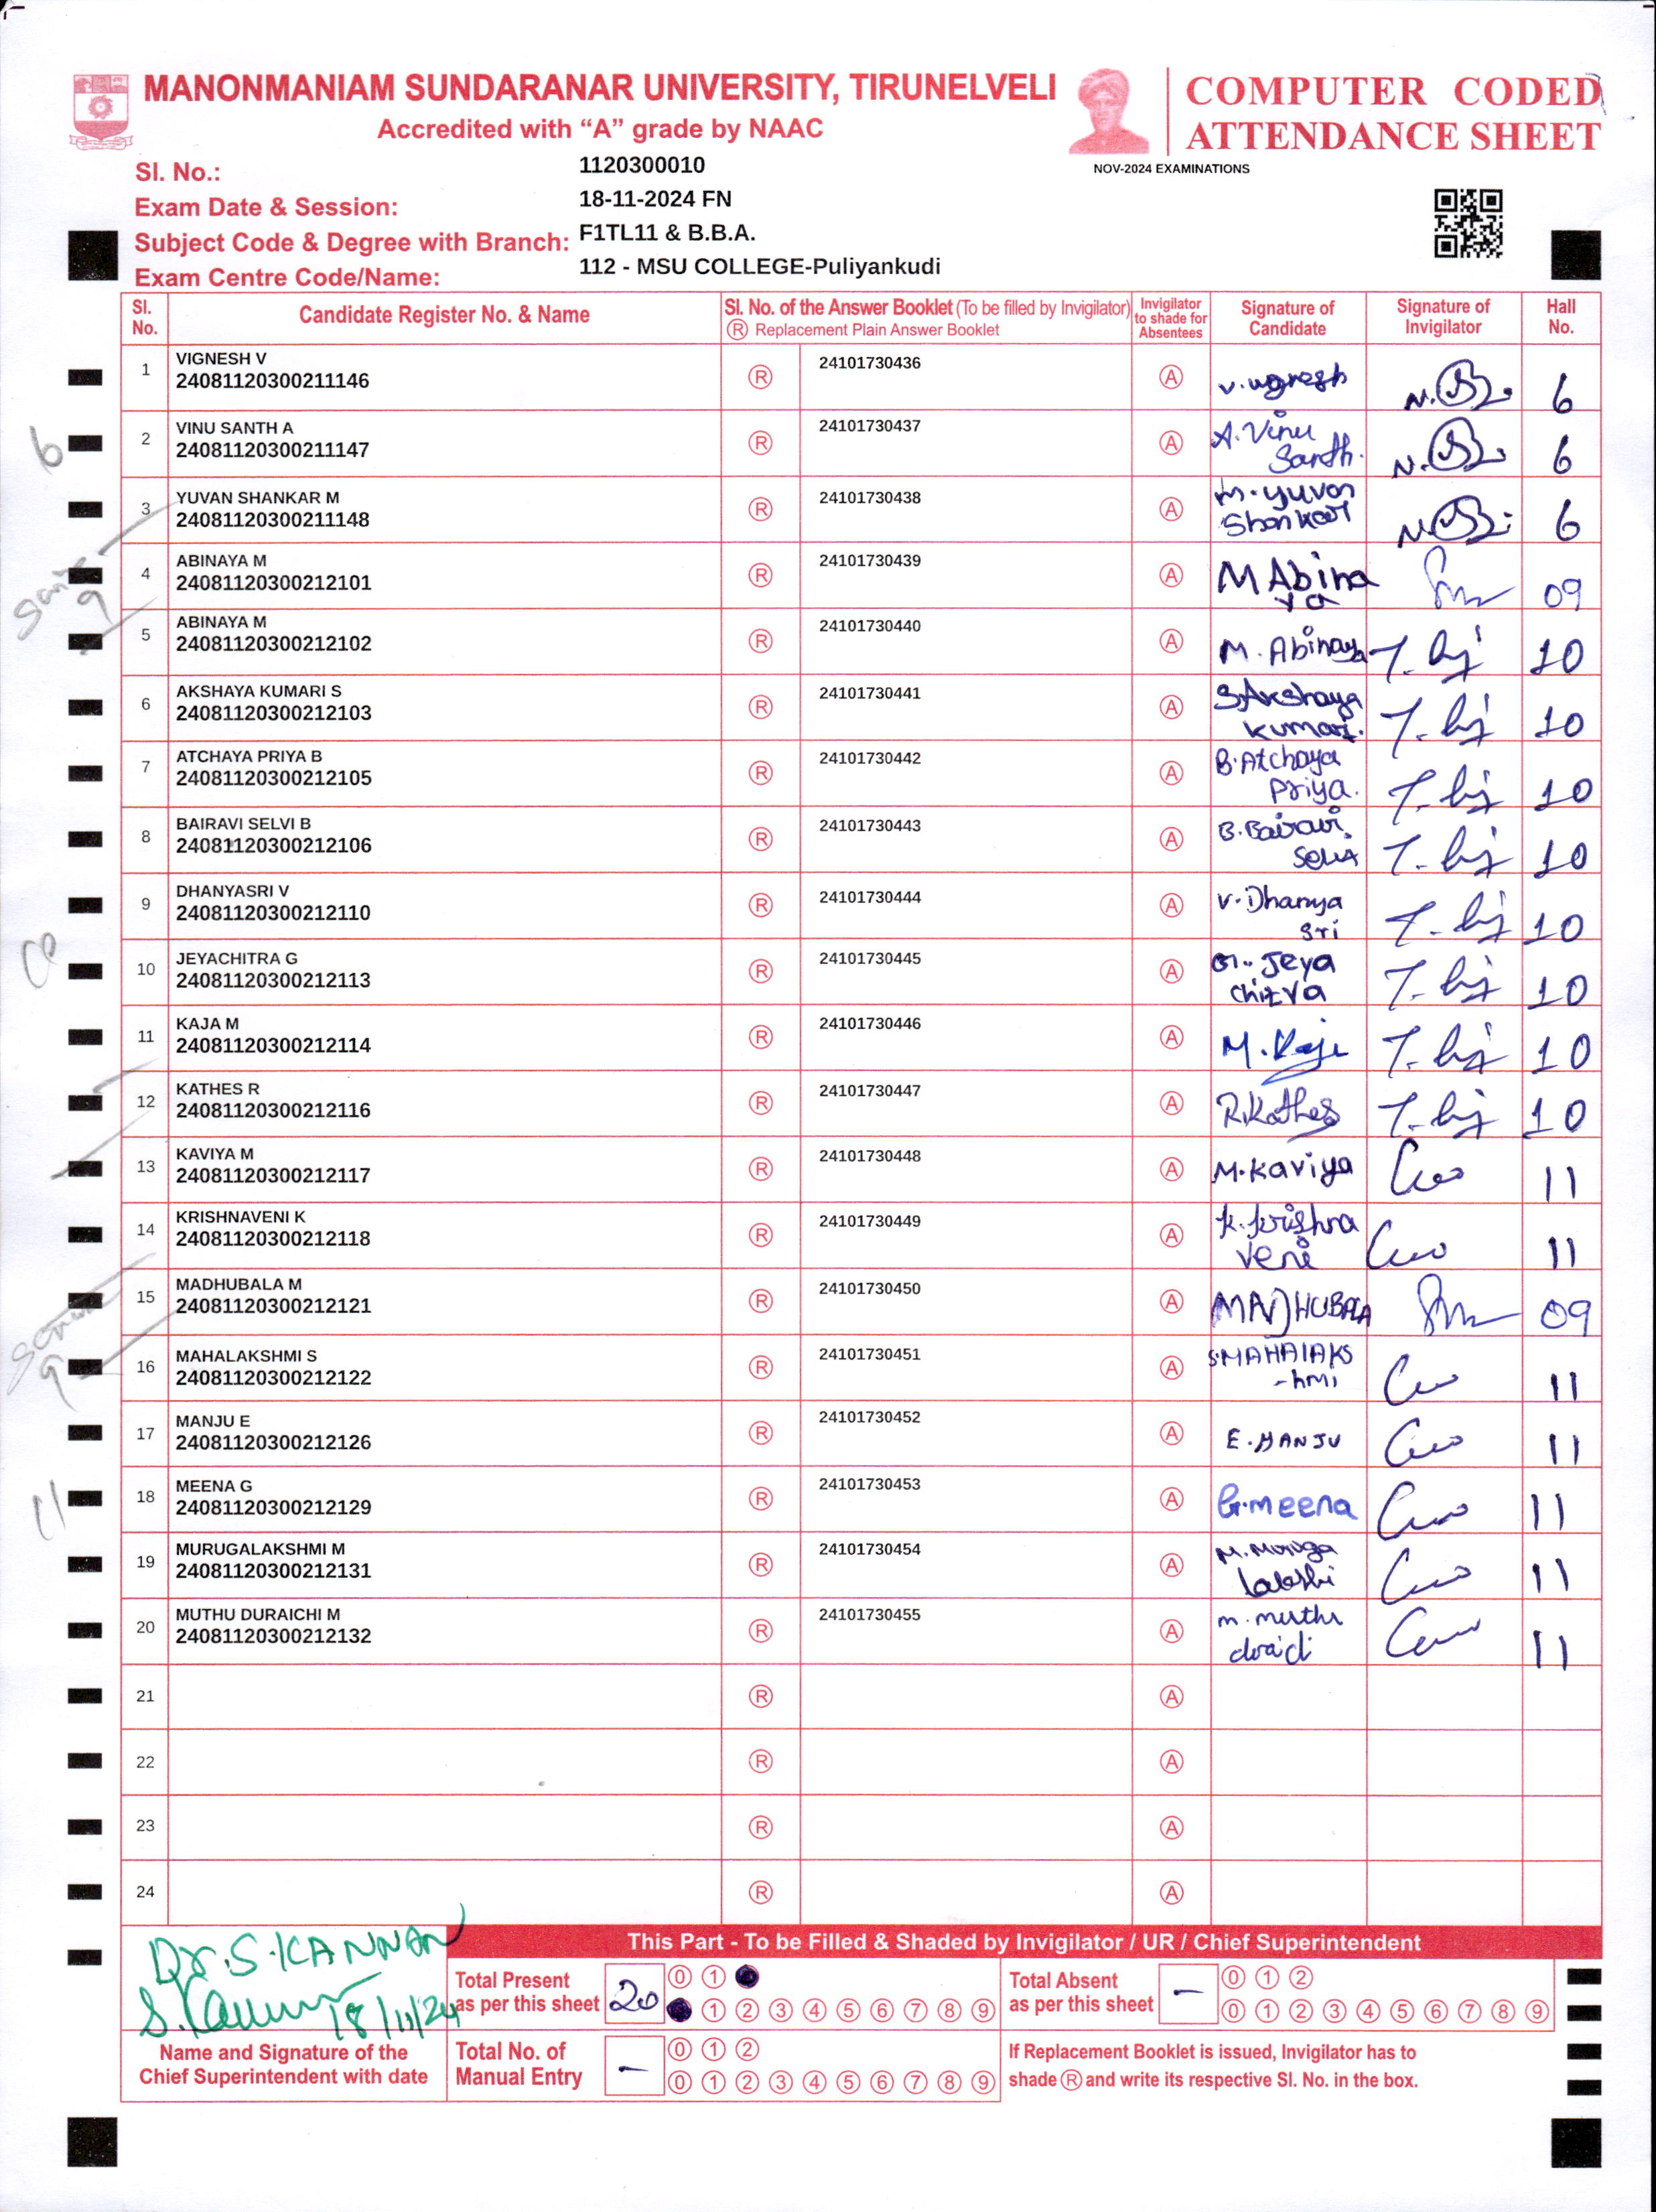 MANONMANIAM SUNDARANAR UNIVERSITY, TIRUNELVELI
Accredited with “A” grade by NAAC
COMPUTER CODED
ATTENDANCE SHEET
NOV-2024 EXAMINATIONS
Sl. No.: 1120300010
Exam Date & Session: 18-11-2024 FN
Subject Code & Degree with Branch: F1TL11 & B.B.A.
Exam Centre Code/Name: 112 - MSU COLLEGE-Puliyankudi
Sl. No. Candidate Register No. & Name Sl. No. of the Answer Booklet (To be filled by Invigilator) Ⓡ Replacement Plain Answer Booklet Invigilator to shade for Absentees Signature of Candidate Signature of Invigilator Hall No.
1 VIGNESH V 24081120300211146 Ⓡ 24101730436 Ⓐ V. Vignesh 6
2 VINU SANTH A 24081120300211147 Ⓡ 24101730437 Ⓐ A. Vinu Santh. 6
3 YUVAN SHANKAR M 24081120300211148 Ⓡ 24101730438 Ⓐ M. Yuvan Shankar 6
4 ABINAYA M 24081120300212101 Ⓡ 24101730439 Ⓐ M Abina ya 09
5 ABINAYA M 24081120300212102 Ⓡ 24101730440 Ⓐ M. Abinaya 10
6 AKSHAYA KUMARI S 24081120300212103 Ⓡ 24101730441 Ⓐ S. Akshaya Kumari. 10
7 ATCHAYA PRIYA B 24081120300212105 Ⓡ 24101730442 Ⓐ B. Atchaya Priya. 10
8 BAIRAVI SELVI B 24081120300212106 Ⓡ 24101730443 Ⓐ B. Bairavi 10
9 DHANYASRI V 24081120300212110 Ⓡ 24101730444 Ⓐ V. Dhanya Sri 10
10 JEYACHITRA G 24081120300212113 Ⓡ 24101730445 Ⓐ G. Jeya Chitra 10
11 KAJA M 24081120300212114 Ⓡ 24101730446 Ⓐ M. Kaja 10
12 KATHES R 24081120300212116 Ⓡ 24101730447 Ⓐ R. Kathes 10
13 KAVIYA M 24081120300212117 Ⓡ 24101730448 Ⓐ M. Kaviya 11
14 KRISHNAVENI K 24081120300212118 Ⓡ 24101730449 Ⓐ K. Krishna Veni 11
15 MADHUBALA M 24081120300212121 Ⓡ 24101730450 Ⓐ MADHUBALA 09
16 MAHALAKSHMI S 24081120300212122 Ⓡ 24101730451 Ⓐ S. MAHALAKS -hmi 11
17 MANJU E 24081120300212126 Ⓡ 24101730452 Ⓐ E. MANJU 11
18 MEENA G 24081120300212129 Ⓡ 24101730453 Ⓐ G. meena 11
19 MURUGALAKSHMI M 24081120300212131 Ⓡ 24101730454 Ⓐ M. Muruga 11
20 MUTHU DURAICHI M 24081120300212132 Ⓡ 24101730455 Ⓐ M. Muthu 11
21 Ⓡ Ⓐ
22 Ⓡ Ⓐ
23 Ⓡ Ⓐ
24 Ⓡ Ⓐ
6
9
10
9
11
Dr. S. KANNAN
S. Kannan 18/11/24
Name and Signature of the Chief Superintendent with date
This Part - To be Filled & Shaded by Invigilator / UR / Chief Superintendent
Total Present as per this sheet 20
0 1
1 2 3 4 5 6 7 8 9
Total Absent as per this sheet -
0 1 2
0 1 2 3 4 5 6 7 8 9
Total No. of Manual Entry -
0 1 2
0 1 2 3 4 5 6 7 8 9
If Replacement Booklet is issued, Invigilator has to
shade Ⓡ and write its respective Sl. No. in the box.